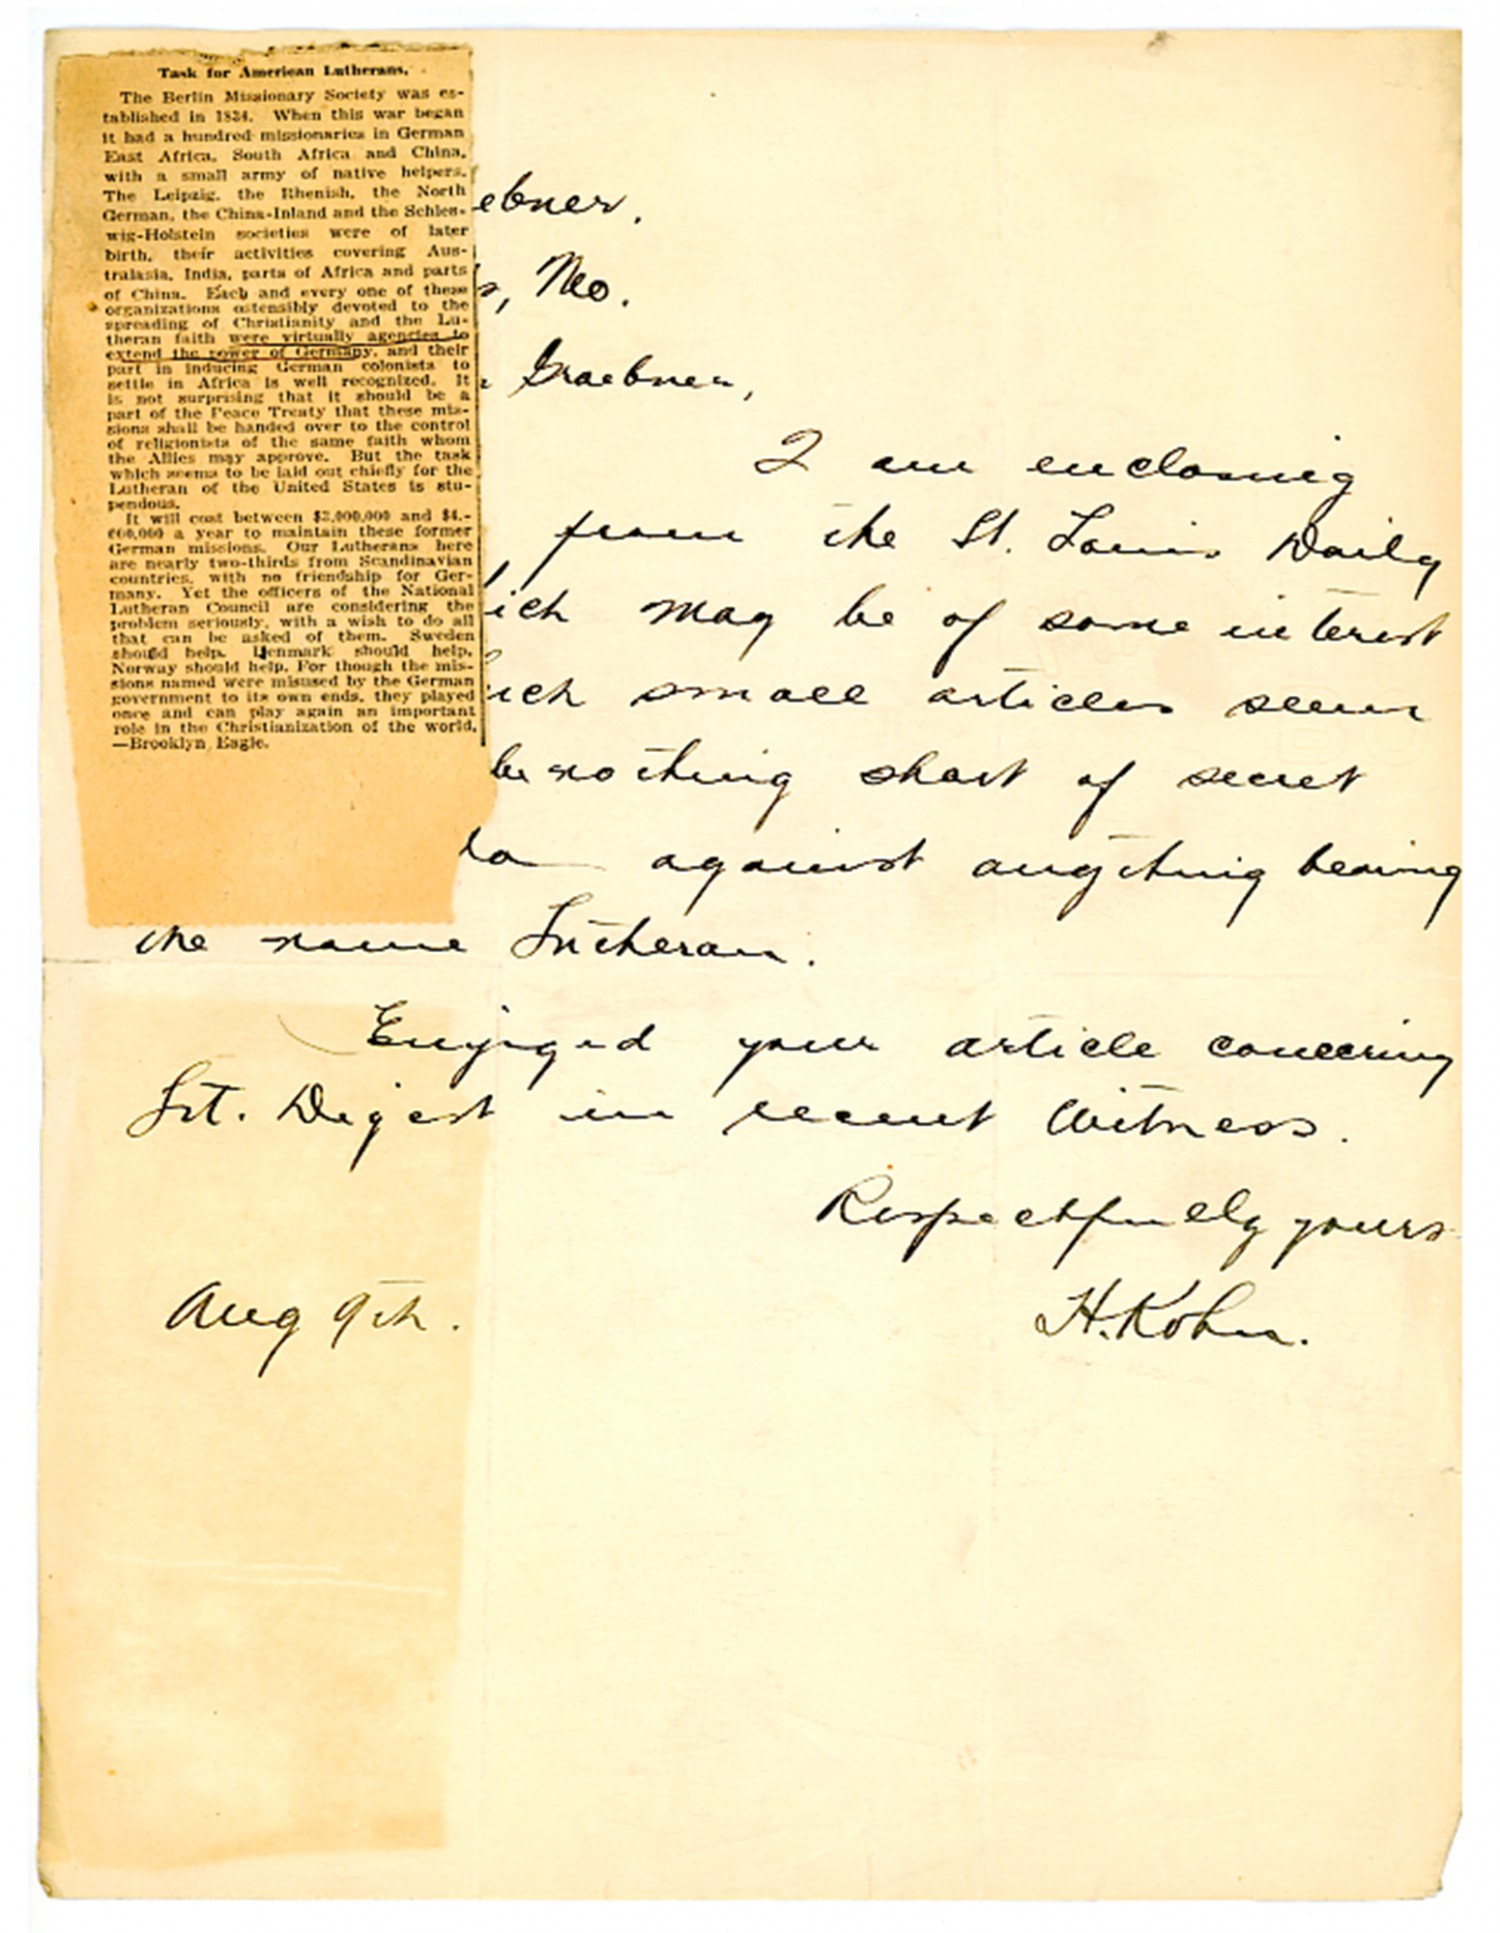 Task for American Lutherans.
The Berlin Missionary Society was es-
tablished in 1824. When this war began
it had a hundred missionaries in German
East Africa, South Africa and China,
with a small army of native helpers.
The Leipzig, the Rhenish, the North
German, the China-Inland and the Schles-
wig-Holstein societies were of later
birth, their activities covering Aus-
tralasia, India, parts of Africa and parts
of China. Each and every one of these
organizations ostensibly devoted to the
spreading of Christianity and the Lu-
theran faith were virtually agencies to
extend the power of Germany, and their
part in inducing German colonists to
settle in Africa is well recognized. It
is not surprising that it should be a
part of the Peace Treaty that these mis-
sions shall be handed over to the control
of religionists of the same faith whom
the Allies may approve. But the task
which seems to be laid out chiefly for the
Lutheran of the United States is stu-
pendous.
It will cost between $3,000,000 and $4,-
000,000 a year to maintain these former
German missions. Our Lutherans here
are nearly two-thirds from Scandinavian
countries, with no friendship for Ger-
many. Yet the officers of the National
Lutheran Council are considering the
problem seriously, with a wish to do all
that can be asked of them. Sweden
should help. Denmark should help.
Norway should help. For though the mis-
sions named were misused by the German
government to its own ends, they played
once and can play again an important
role in the Christianization of the world.
—Brooklyn Eagle.
ebner.
s, Mo.
Graebner,
I am enclosing
from the St. Louis Daily
ich may be of some interest
uch small articles seem
be nothing short of secret
da against anything bearing
the name Lutheran.
Enjoyed your article concering
Lit. Digest in recent Witness.
Respectfully yours
Aug 9th. H. Kohn.